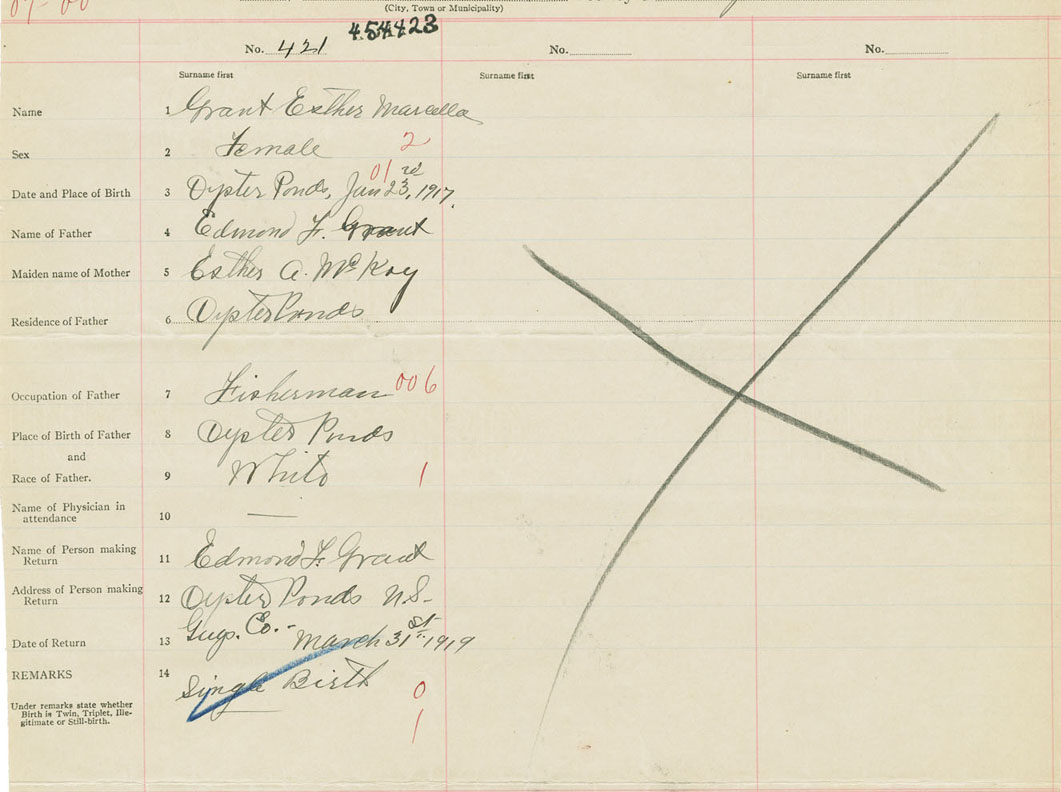 (City, Town or Municipality)
No. 421
No.
No.
Surname first
Surname first
Surname first
Name 1 Grant Esther Marcella
Sex 2 Female 2
01
Date and Place of Birth 3 Oyster Ponds, Jan 23, rd 1917.
Name of Father 4 Edmond F. Grant
Maiden name of Mother 5 Esther A. McKay
Residence of Father 6 Oyster Ponds
Occupation of Father 7 Fisherman 006
Place of Birth of Father 8 Oyster Ponds
and
Race of Father. 9 White 1
Name of Physician in
attendance 10 —
Name of Person making
Return 11 Edmond F. Grant
Address of Person making
Return 12 Oyster Ponds N.S-
Guys. Co. -
Date of Return 13 March 31st 1919
REMARKS 14 Single Birth
0
Under remarks state whether
Birth is Twin, Triplet, Ille-
gitimate or Still-birth.
1